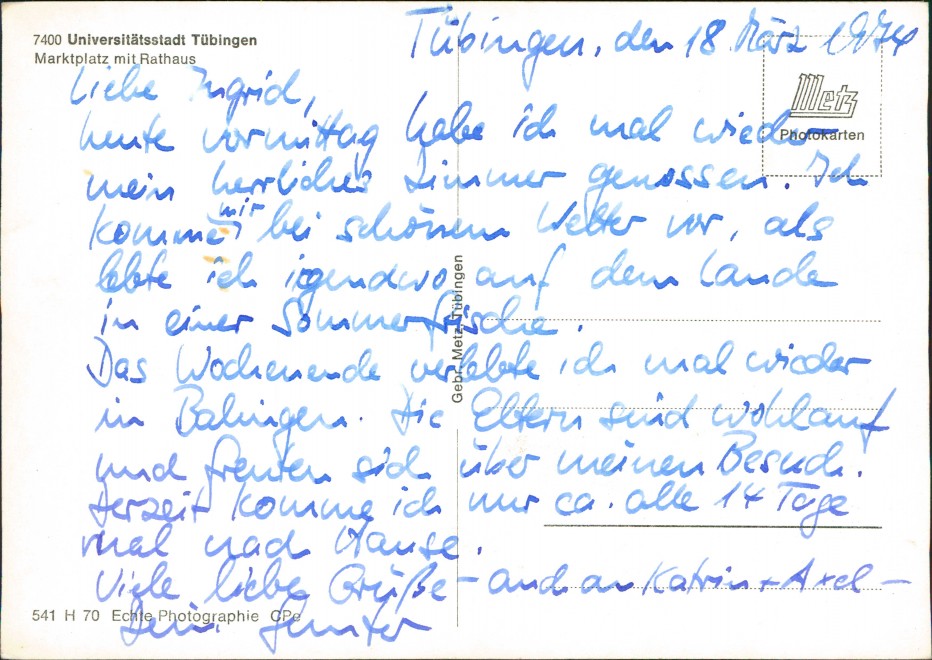 7400 Universitätsstadt Tübingen
Marktplatz mit Rathaus
Tübingen, den 18. März 1974
Metz
Photokarten
Liebe Ingrid,
heute vormittag habe ich mal wieder
mein herrliches Zimmer genossen. Ich
komme mir bei schönem Wetter vor, als
lebte ich irgendwo auf dem Lande
in einer Sommerfrische.
Das Wochenende verlebte ich mal wieder
in Balingen. Die Eltern sind wohlauf
und freuten sich über meinen Besuch.
Derzeit komme ich nur ca. alle 14 Tage
mal nach Hause.
Viele liebe Grüße – auch an Katrin + Axel –
Dein
Gebr. Metz, Tübingen
541 H 70 Echte Photographie CPc